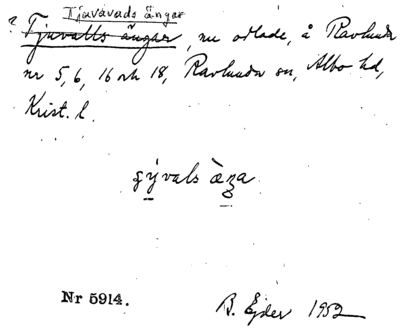 Tjuvavads ängar
? Tjuvalls ängar, nu odlade, å Ravlunda
nr 5, 6, 16 och 18, Ravlunda sn, Albo hd,
Krist. l.
Nr 5914.
B. Ejder 1952